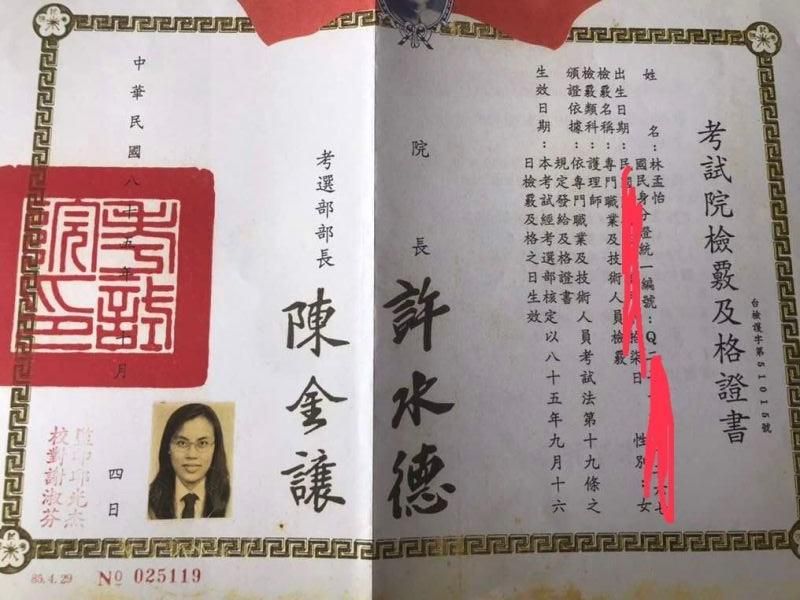 考試院檢覈及格證書
台檢護字第51015號
姓名：林孟怡
國民身分證統一編號：Q二
性別：女
出生日期：民 拾柒日
檢覈名稱：專門職業及技術人員檢覈
檢覈類科：護理師
頒證依據：依專門職業及技術人員考試法第十九條之
規定發給及格證書
生效日期：本考試經考選部核定以八十五年九月十六
日檢覈及格之日生效
院長 許水德
考選部部長 陳金讓
中華民國八十五年十月四日
考試院印
監印邱兆杰
校對謝淑芬
85.4.29 No 025119